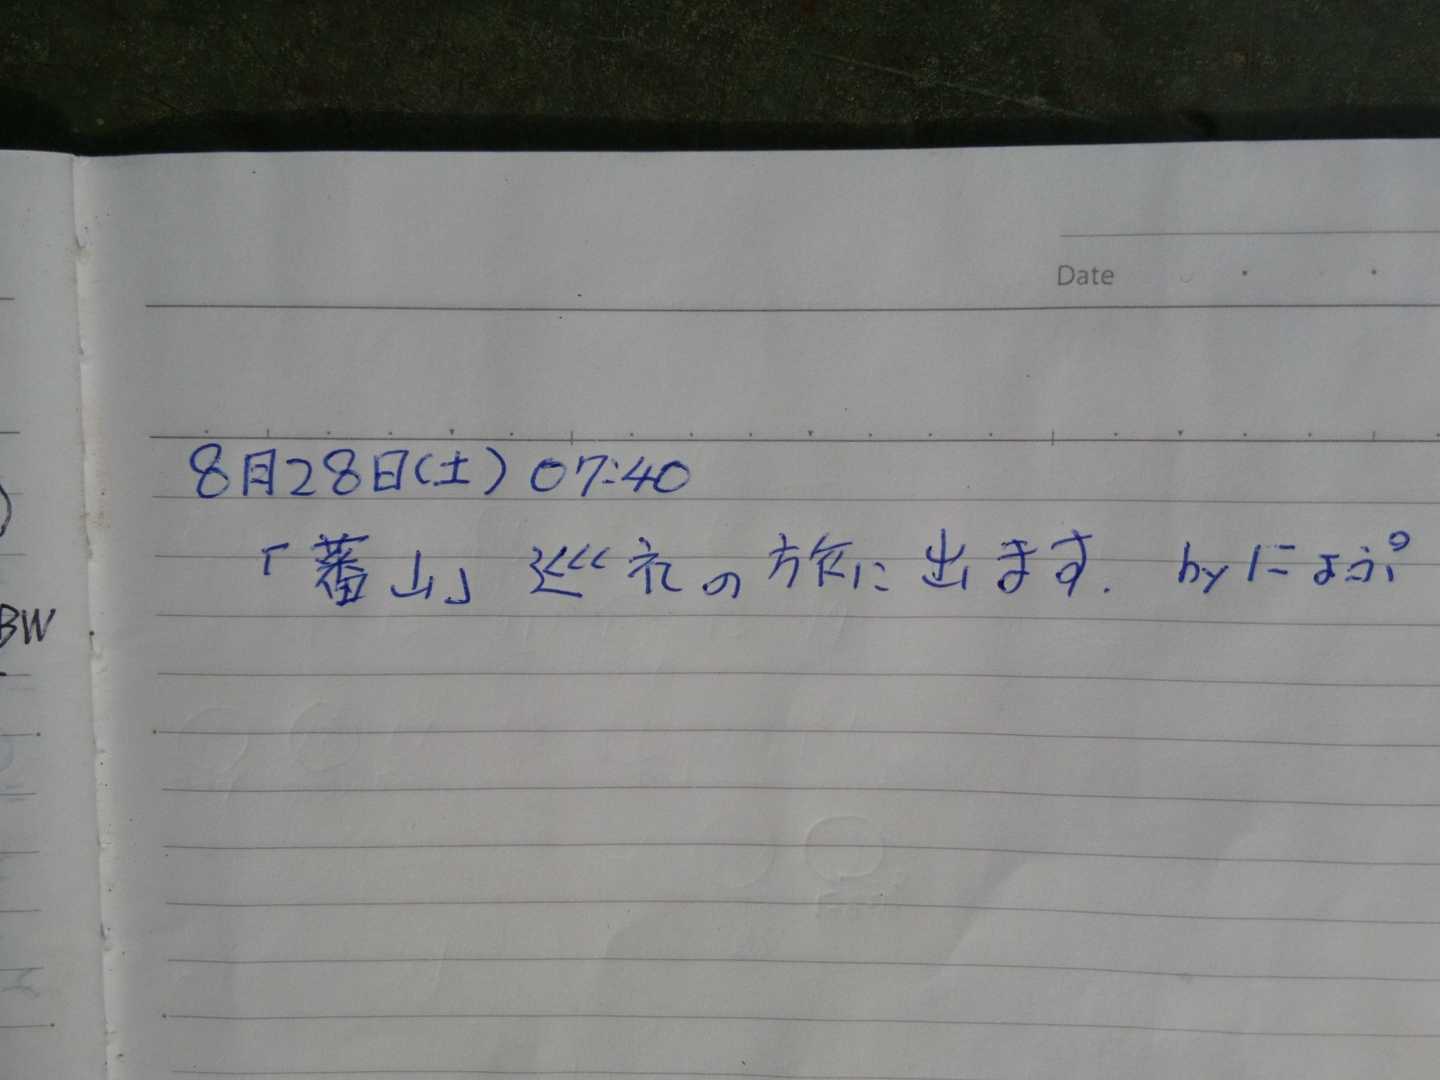 Date
8月28日(土) 07:40
「蕃山」巡礼の旅に出ます. byにょぷ
BW